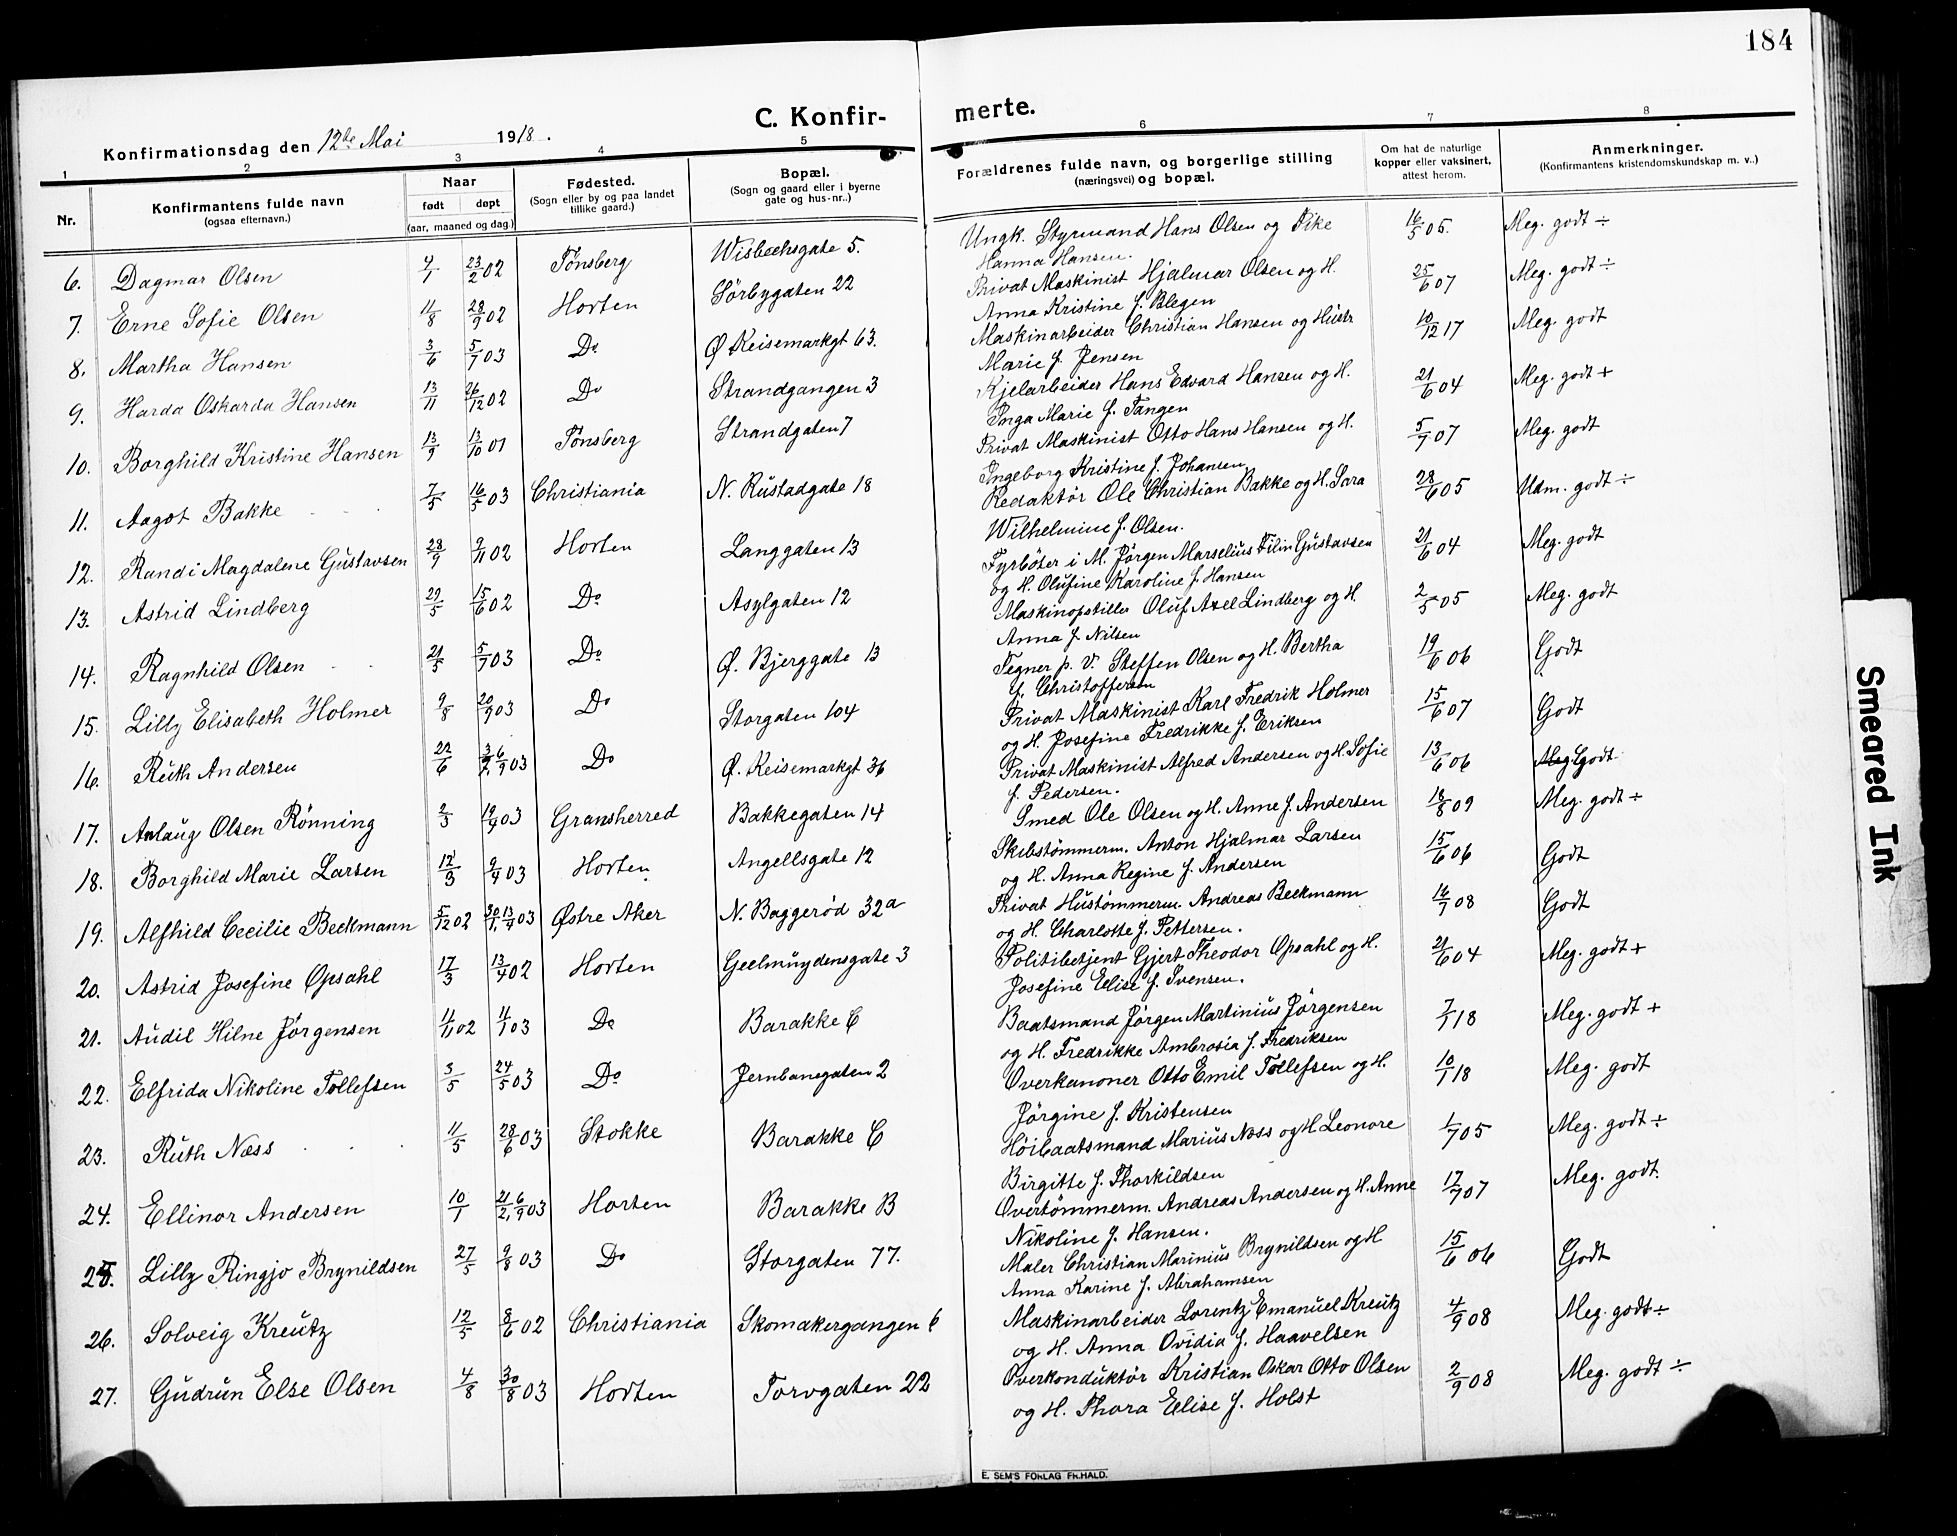 184
C. Konfirmerte.
Konfirmationsdag den 12te Mai 1918.
1 2 3 4 5 6 7 8
Nr.
Konfirmantens fulde navn
(ogsaa efternavn.)
Naar
født døpt
(aar, maaned og dag.)
Fødested.
(Sogn eller by og paa landet
tillike gaard.)
Bopæl.
(Sogn og gaard eller i byerne
gate og hus-nr.,)
Forældrenes fulde navn, og borgerlige stilling
(næringsvei) og bopæl.
Om hat de naturlige
kopper eller vaksinert,
attest herom.
Anmerkninger.
(Konfirmantens kristendomskundskap m. v.,)
6. Dagmar Olsen 4/1 23/2 02 Tønsberg Wisbechsgate 5. Ungk. Styrmand Hans Olsen og Pike 16/5 05. Meg. godt ÷
Hanna Hansen.
7. Erne Sofie Olsen 11/8 28/9 02 Horten Sørbygaten 22 Privat Maskinist Hjalmar Olsen og H. 25/6 07 Meg. godt ÷
Anna Kristine f. Blegen
8. Martha Hansen 3/6 5/7 03 Do Ø Keisemarkgt 63. Maskinarbeider Christian Hansen og Hustr 10/12 17 Meg. godt
Marie f. Jensen
9. Harda Oskarda Hansen 13/11 26/12 02 Do Strandgangen 3 Kjelarbeider Hans Edvard Hansen og H. 21/6 04 Meg. godt +
Inga Marie f. Tangen
10. Borghild Kristine Hansen 13/9 13/10 01 Tønsberg Strandgaten 7 Privat Maskinist Otto Hans Hansen og H. 5/9 07 Meg. godt
Ingeborg Kristine f. Johansen
11. Aagot Bakke 7/5 16/5 03 Christiania N. Rustadgate 18 Redaktør Ole Christian Bakke og H. Sara 28/6 05 Udm. godt ÷
Wilhelmine f. Olsen.
12. Randi Magdalene Gustavsen 28/9 9/11 02 Horten Langgaten 13 Fyrbøter i M. Jørgen Marselius Filin Gustavsen 21/6 04 Meg. godt
og H. Olufine Karoline f. Hansen
13. Astrid Lindberg 29/5 15/6 02 Do Asylgaten 12 Maskinopstiller Oluf Axel Lindberg og H. 2/5 05 Meg. godt
Anna f. Nilsen
14. Ragnhild Olsen 21/5 5/7 03 Do Ø. Bjerggate 13 Tegner p. V. Steffen Olsen og H. Bertha 19/6 06 Godt
f. Christoffersen
15. Lilly Elisabeth Holmer 9/8 20/9 03 Do Storgaten 104 Privat Maskinist Karl Fredrik Holmer 15/6 07 Godt
og H. Josefine Fredrikke f. Eriksen
16. Ruth Andersen 22/6 6/9 03 Do Ø. Keisemarkgt 36 Privat Maskinist Alfred Andersen og H. Sofie 13/6 06 Godt
f. Pedersen.
17. Anlaug Olsen Rønning 2/3 19/4 03 Gransherred Bakkegaten 14 Smed Ole Olsen og H. Anne f. Andersen 18/8 09 Meg. godt ÷
18. Borghild Marie Larsen 12/3 9/4 03 Horten Angellsgate 12 Skibstømmerm. Anton Hjalmar Larsen 15/6 06 Godt
og H. Anna Regine f. Andersen
19. Alfhild Cecilie Beckmann 5/12 02 30/1, 13/4 03 Østre Aker N. Baggerød 32a Privat Hustømmerm. Andreas Beckmann 16/7 08 Godt
og H. Charlotte f. Pettersen.
20. Astrid Josefine Opsahl 17/3 13/4 02 Horten Geelmuydensgate 3 Politibetjent Gjert Theodor Opsahl og H. 21/6 04 Meg. godt +
Josefine Elise f. Svensen.
21. Audil Hilne Jørgensen 11/11 02 11/1 03 Do Barakke C Baatsmand Jørgen Martinius Jørgensen 7/1 18 Meg. godt +
og H. Fredrikke Ambrosia f. Fredriksen
22. Elfrida Nikoline Tollefsen 3/5 24/5 03 Do Jernbanegaten 2 Overkanoner Otto Emil Tollefsen og H. 10/1 18 Meg. godt
Jørgine f. Kristensen
23. Ruth Næss 11/5 28/6 03 Stokke Barakke C Høibaatsmand Marius Næss og H Leonore 1/7 05 Meg. godt ÷
Birgitte f. Thorkildsen
24. Ellinor Andersen 10/1 21/2, 6/9 03 Horten Barakke B Overtømmerm. Andreas Andersen og H. Anne 17/7 07 Meg. godt.
Nikoline f. Hansen.
25. Lilly Ringjo Brynildsen 27/5 9/8 03 Do Storgaten 77. Maler Christian Marinius Brynildsen og H 15/6 06 Godt
Anna Karine f. Abrahamsen
26. Solveig Kreutz 12/5 8/6 02 Christiania Skomakergangen 6 Maskinarbeider Lorentz Emanuel Kreutz 4/9 08 Meg. godt ÷
og H. Anna Ovidia f. Haavelsen
27. Gudrun Else Olsen 4/8 30/8 03 Horten Torvgaten 22 Overkonduktør Kristian Oskar Otto Olsen 2/9 08 Meg. godt ÷
og H. Thora Elise f. Holst
E. SEM'S FORLAG FR.HALD.
Smeared Ink